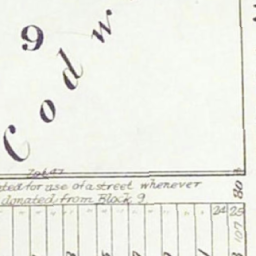 9
Codw
ted for use of a street whenever
donated from Block 9
80
24 25
107